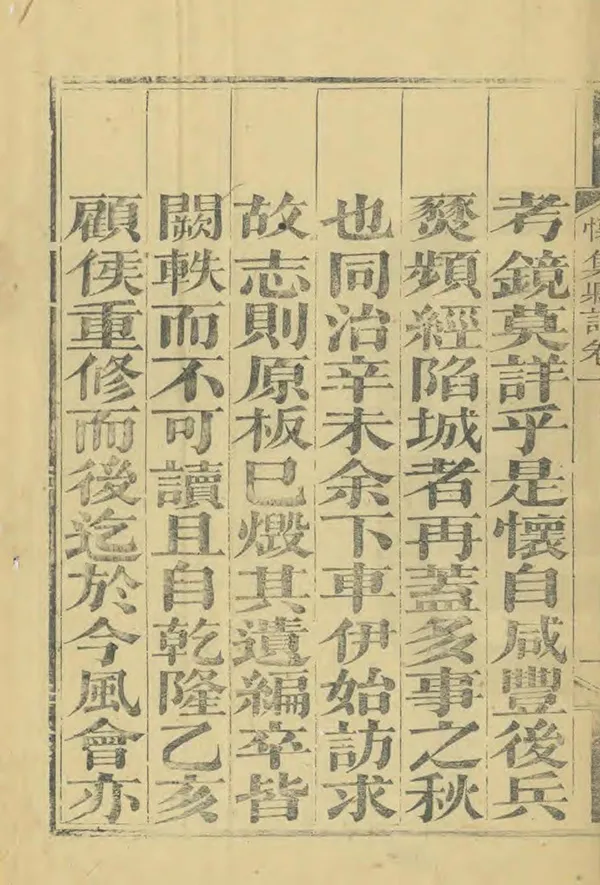 懷集縣志卷一
考鏡莫詳乎是懷自咸豐後兵
燹頻經陷城者再蓋多事之秋
也同治辛未余下車伊始訪求
故志則原板已燬其遺編卒皆
闕軼而不可讀且自乾隆乙亥
顧侯重修而後迄於今風會亦